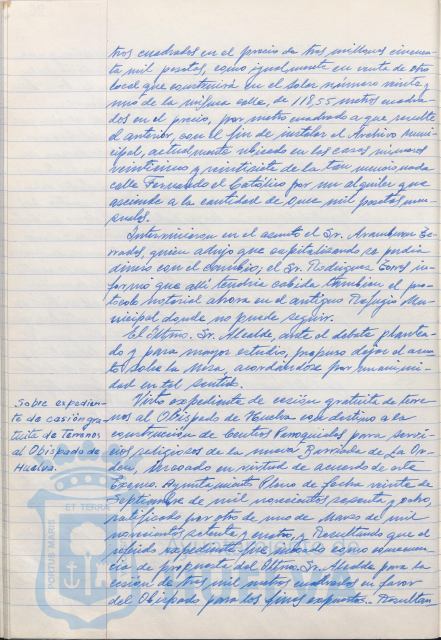 tros cuadrados en el precio de tres millones cincuen-
ta mil pesetas, como igualmente en venta de otro
local que construirá en el solar número veintiy
uno de la misma calle, de 118,55 metros cuadra-
dos en el precio, por metro cuadrado a que resulte
el anterior, con el fin de instalar el Archivo muni-
cipal, actualmente ubicado en las casas números
veinticinco y veintisiete de la tan mencionada
calle Fernando el Católico por un alquiler que
asciende a la cantidad de once mil pesetas men-
suales.
Intervinieron en el asunto el Sr.
rrados, quien adujo que capitalizando se perdía
dinero con el cambio; el Sr. Rodriguez Torres in-
formó que allí tendría cabida tambien el pro-
tocolo notarial ahora en el antiguo Refugio Mu-
nicipal donde no puede seguir.
El Iltmo. Sr. Alcalde, ante el debate plantea-
do y para mayor estudio, propuso dejar el asun-
to sobre la mesa, acordándose por unanimi-
dad en tal sentido.
Sobre expedien-
te de cesión gra-
tuita de Terrenos
al Obispado de
Huelva.
Visto expediente de cesión gratuita de terre-
nos al Obispado de Huelva con destino a la
construcción de Centros Parroquiales para servi-
cios religiosos de la nueva Barriada de La Or-
den, incoado en virtud de acuerdo de este
Excmo. Ayuntamiento Pleno de fecha veinte de
Septiembre de mil novecientos sesenta y ocho,
ratificado por otro de uno de Marzo de mil
novecientos setenta y cuatro, y Resultando que el
referido expediente fue incoado como consecuen-
cia de propuesta del Iltmo. Sr. Alcalde para la
cesión de tres mil metros cuadrados en favor
del Obispado para los fines expuestos.- Resultan
PORTUS MARIS
ET TERRA